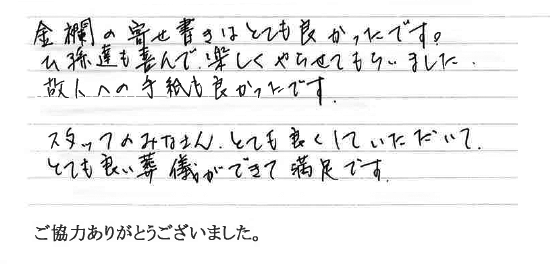 金襴の寄せ書きはとても良かったです。
ひ孫達も喜んで、楽しくやらせてもらいました.
故人への手紙も良かったです.
スタッフのみなさん、とても良くしていただいて.
とても良い葬儀ができて満足です.
ご協力ありがとうございました。